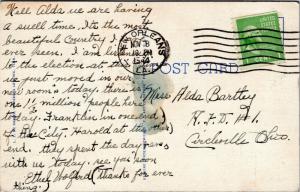 Well Alda we are having
a swell time. Its the most
beautiful Country I
ever seen. I am listening
to the election at
we just moved in our
new room's today. there is
one 1/2 million people here
today. Franklin in one end
of the City. Harold at the other
end. they spent the day
with us today. see you soon
Ethel Wolford (thanks for ever
thing.)
NEW ORLEANS
NOV 8
1944
LA.
POST CARD
1 CENT
Miss Alda Bartley
R.F.D. #1.
Circleville Ohio.